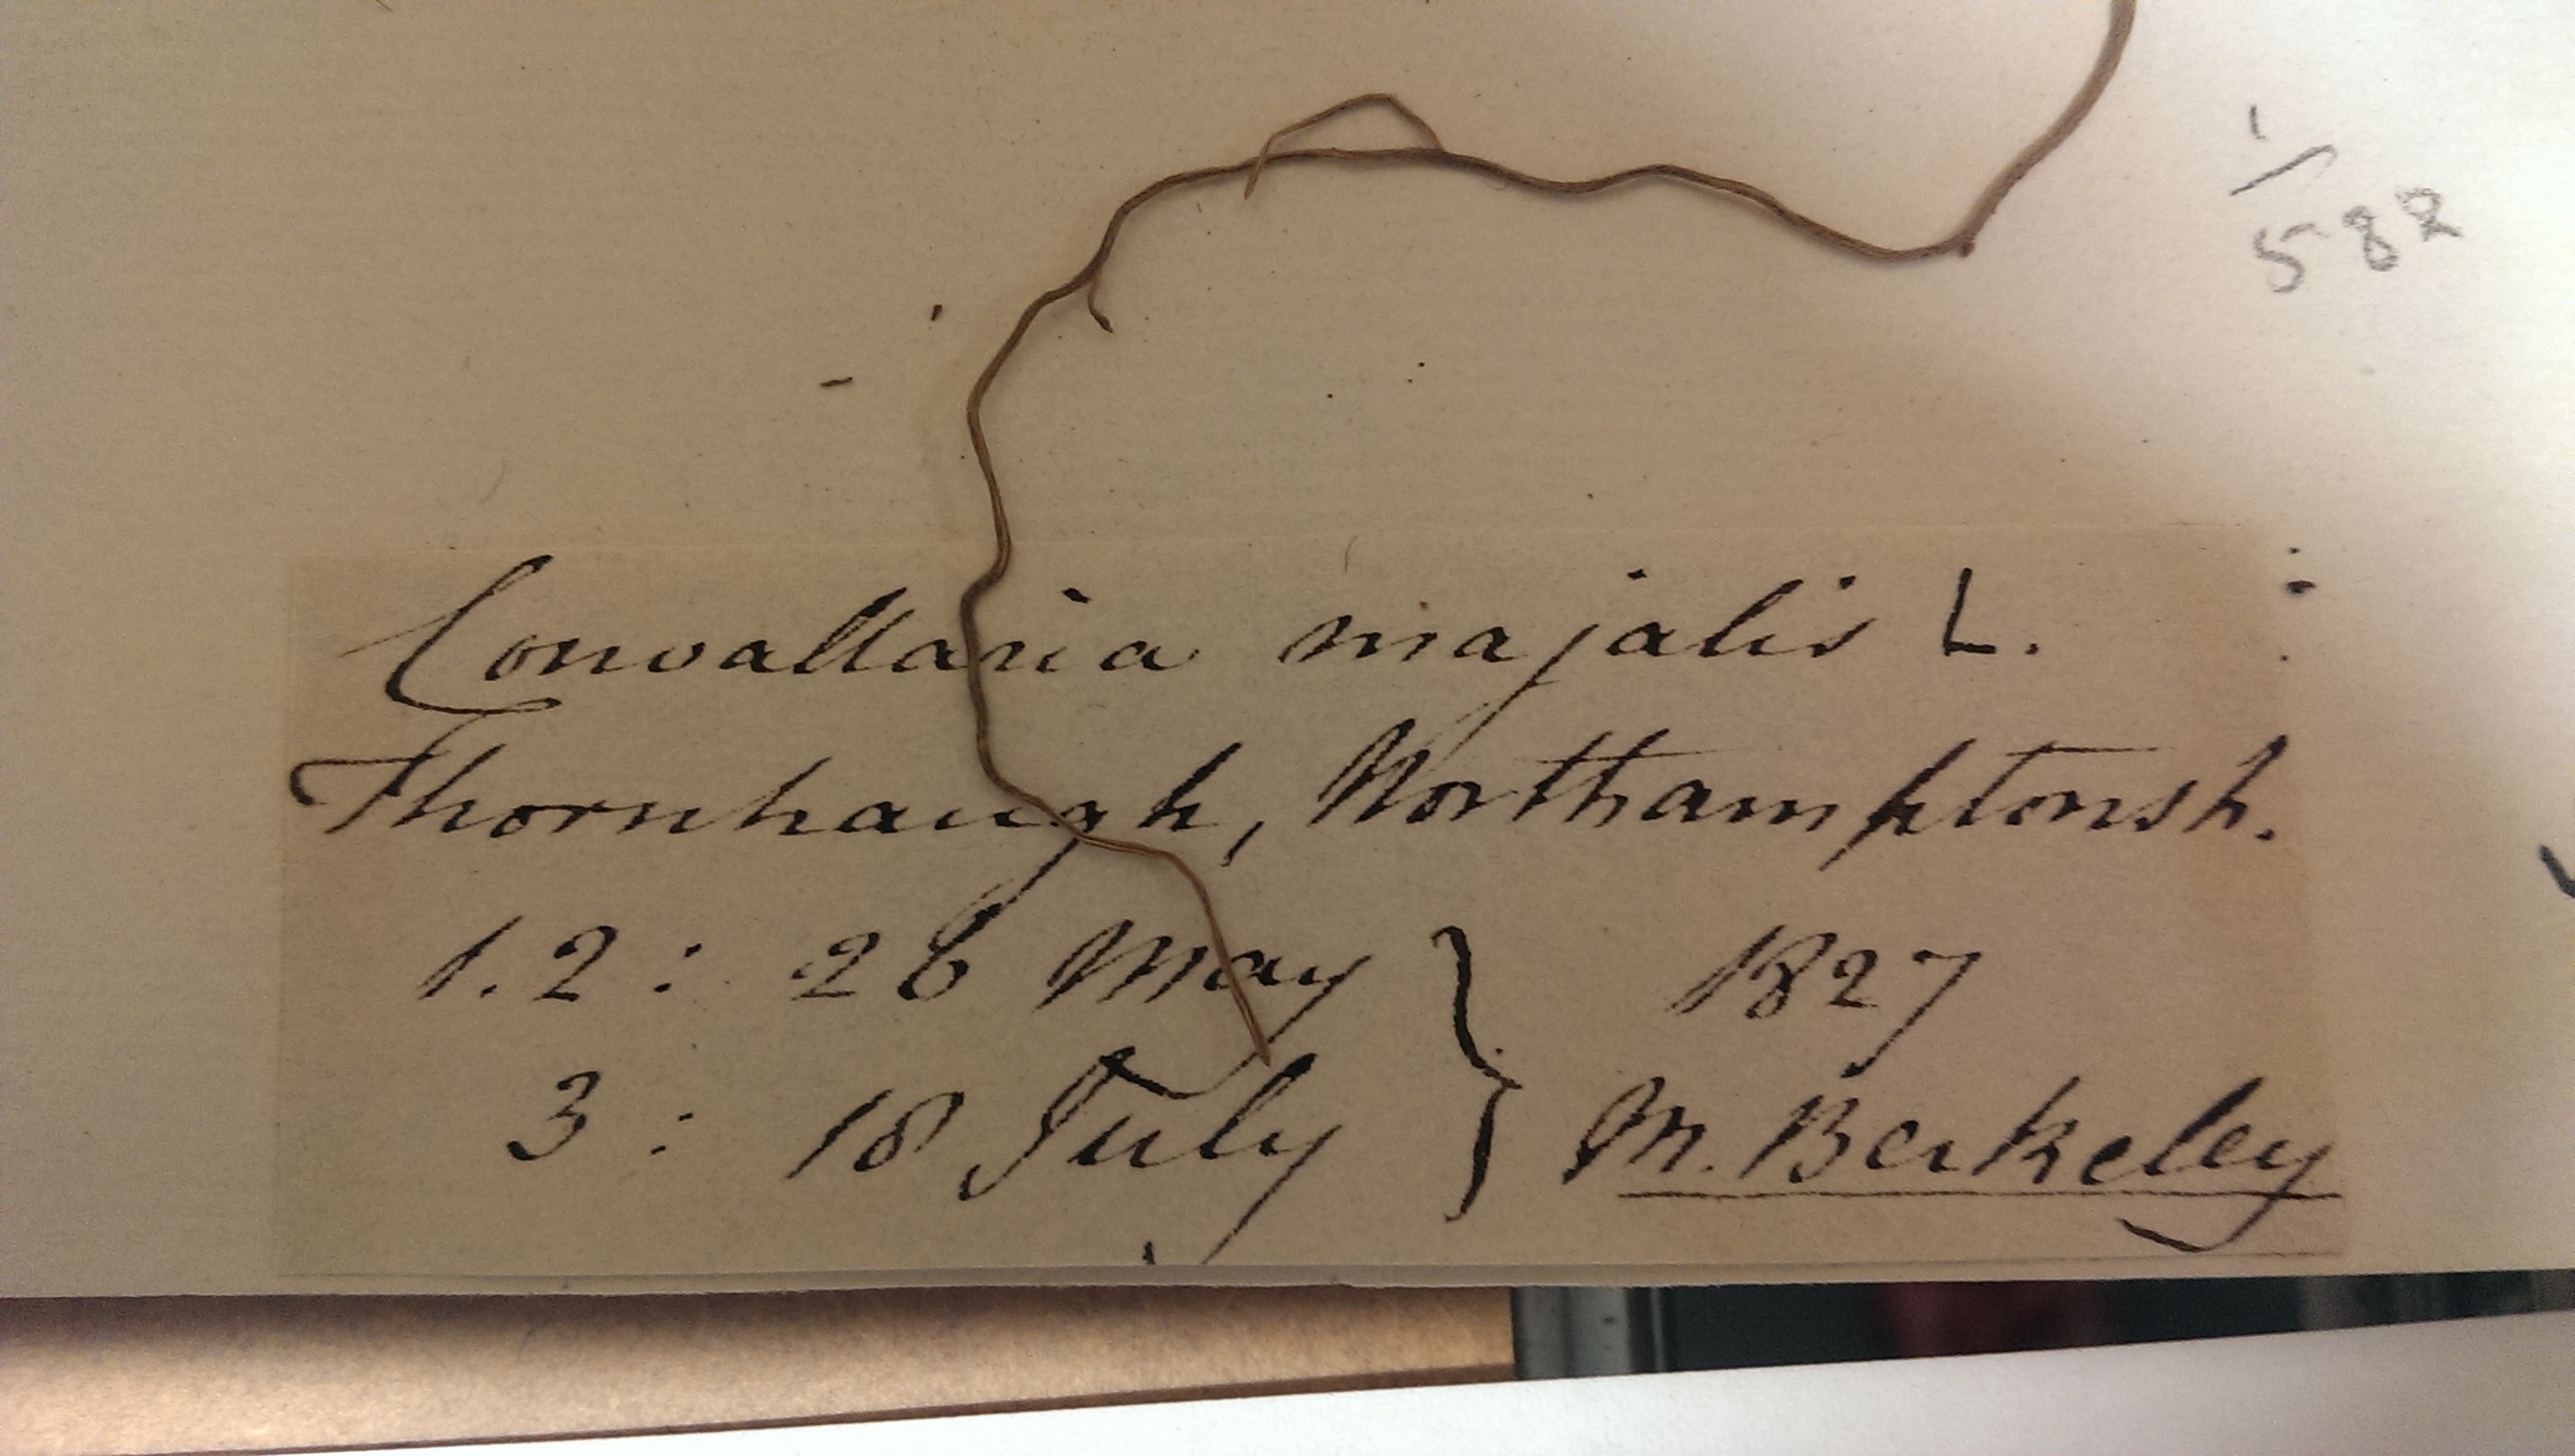 1/582
Convallaria majalis L.
Thornhaugh, Northamptonsh.
1. 2 : 26 May } 1827
3 : 18 July } M. Berkeley